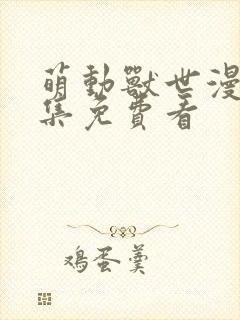 萌動獸世漫
集免費看
鸡蛋羹